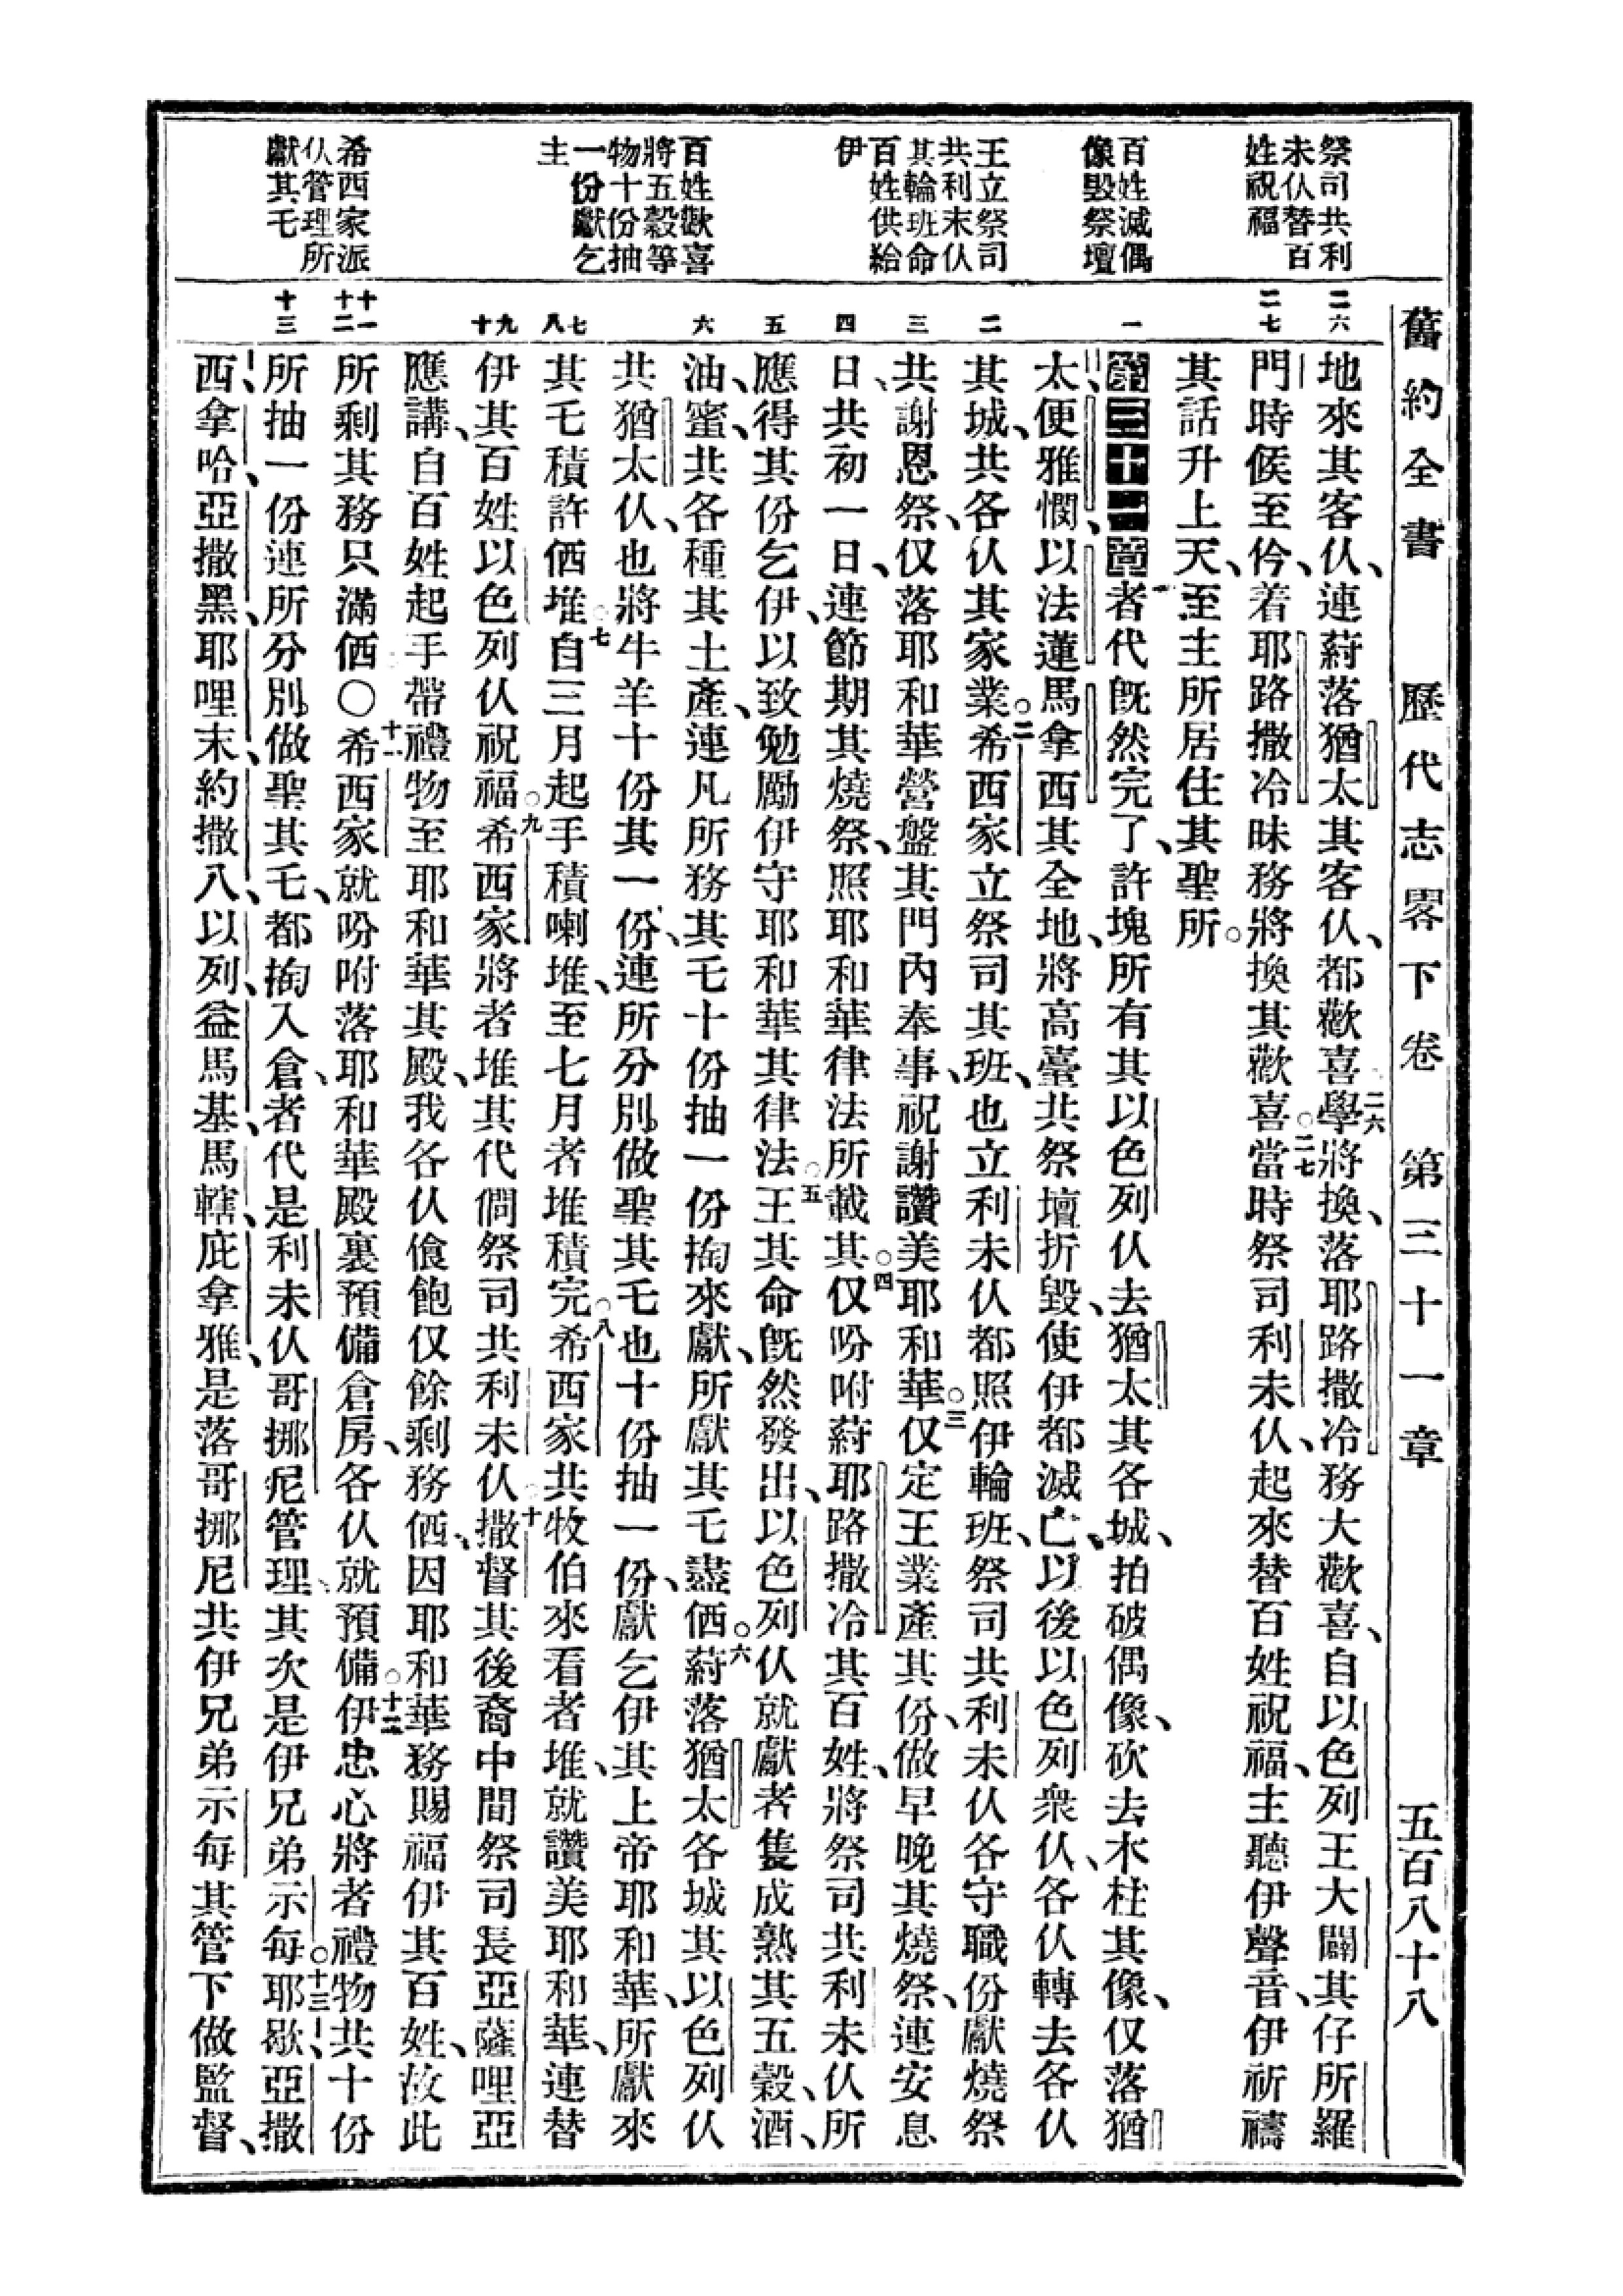 舊約全書 歷代志畧下卷 第三十一章 五百八十八
祭司共利
未仈替百
姓祝福
百姓滅偶
像毀祭壇
王立祭司
共利未仈
其輪班命
百姓供給
伊
百姓歡喜
將五穀等
物十份抽
一份獻乞
主
希西家派
仈管理所
獻其乇
二六
二七
一
二
三
四
五
六
七
八
九
十
十一
十二
十三
地來其客仈、連葤落猶太其客仈、都歡喜○二六學將換、落耶路撒冷務大歡喜、自以色列王大闢其仔所羅
門時候至仱、着耶路撒冷昧務將換其歡喜○二七當時祭司利未仈、起來替百姓祝福、主聽伊聲音、伊祈禱
其話升上天、至主所居住其聖所。
第三十一章 一者代旣然完了、許塊所有其以色列仈去猶太其各城、拍破偶像、砍去木柱其像、仅落猶
太、便雅憫、以法蓮馬拿西其全地、將高臺共祭壇折毀、使伊都滅亡、以後以色列衆仈、各仈轉去各仈
其城、共各仈其家業○二希西家立祭司其班、也立利未仈都照伊輪班、祭司共利未仈各守職份獻燒祭
共謝恩祭、仅落耶和華營盤其門內奉事、祝謝讚美耶和華○三仅定王業產其份、做早晚其燒祭、連安息
日、共初一日、連節期其燒祭、照耶和華律法所載其○四仅吩咐葤耶路撒冷其百姓、將祭司共利未仈所
應得其份乞伊、以致勉勵伊守耶和華其律法○五王其命旣然發出、以色列仈就獻者隻成熟其五穀、酒、
油、蜜、共各種其土產、連凡所務其乇十份抽一份掏來獻、所獻其乇盡価○六葤落猶太各城其以色列仈
共猶太仈、也將牛羊十份其一份、連所分別做聖其乇也十份抽一份、獻乞伊其上帝耶和華、所獻來
其乇積許価堆○七自三月起手積喇堆、至七月者堆積完○八希西家共牧伯來看者堆、就讚美耶和華、連替
伊其百姓以色列仈祝福○九希西家將者堆其代僩祭司共利未仈○十撒督其後裔中間祭司長亞薩哩亞
應講、自百姓起手帶禮物至耶和華其殿、我各仈飱飽仅餘剩務価、因耶和華務賜福伊其百姓、故此
所剩其務只滿価〇十一希西家就吩咐落耶和華殿裏預備倉房、各仈就預備○十二伊忠心將者禮物共十份
所抽一份連所分別做聖其乇、都掏入倉、者代是利未仈哥挪尼管理、其次是伊兄弟示每○十三耶歇、亞撒
西、拿哈、亞撒黑、耶哩末、約撒八、以列、益馬基、馬轄、庇拿雅、是落哥挪尼共伊兄弟示每其管下做監督、